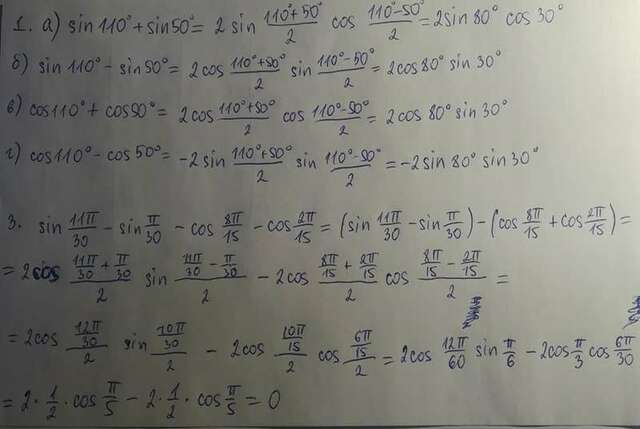 1. а) sin 110° + sin 50° = 2 sin (110°+50°)/2 cos (110°-50°)/2 = 2 sin 80° cos 30°
б) sin 110° - sin 50° = 2 cos (110°+50°)/2 sin (110°-50°)/2 = 2 cos 80° sin 30°
в) cos 110° + cos 50° = 2 cos (110°+50°)/2 cos (110°-50°)/2 = 2 cos 80° sin 30°
г) cos 110° - cos 50° = -2 sin (110°+50°)/2 sin (110°-50°)/2 = -2 sin 80° sin 30°
3. sin 11π/30 - sin π/30 - cos 8π/15 - cos 2π/15 = (sin 11π/30 - sin π/30) - (cos 8π/15 + cos 2π/15) =
= 2 cos (11π/30 + π/30)/2 sin (11π/30 - π/30)/2 - 2 cos (8π/15 + 2π/15)/2 cos (8π/15 - 2π/15)/2 =
= 2 cos (12π/30)/2 sin (10π/30)/2 - 2 cos (10π/15)/2 cos (6π/15)/2 = 2 cos 12π/60 sin π/6 - 2 cos π/3 cos 6π/30
= 2 · 1/2 · cos π/5 - 2 · 1/2 · cos π/5 = 0